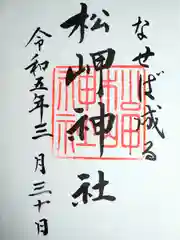 なせば成る
松岬神社
令和五年三月三十日